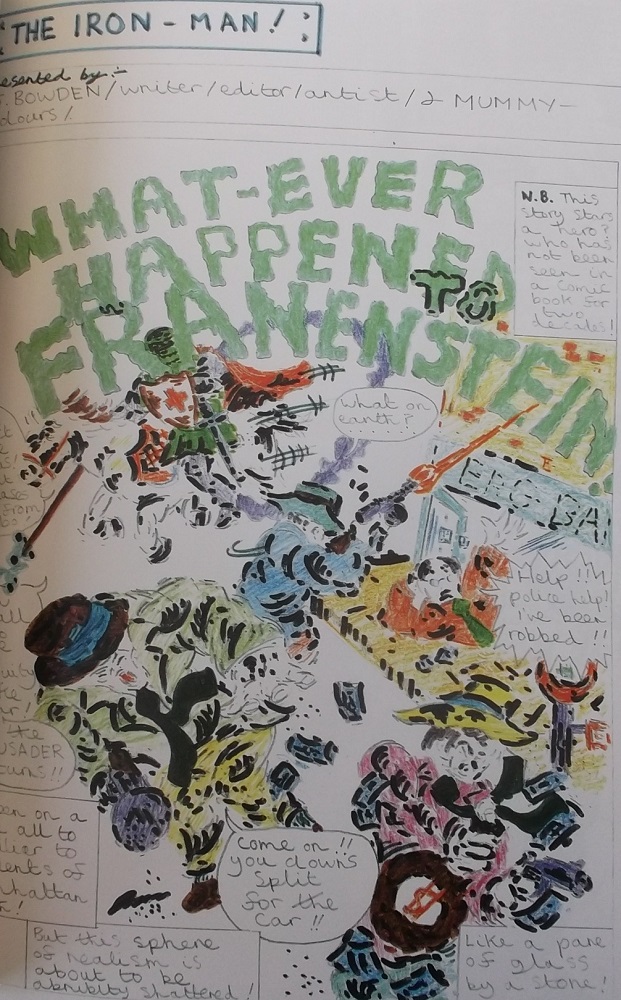 "THE IRON-MAN!":
esented by:-
BOWDEN/writer/editor/artist/2 MUMMY-
olours/.
WHAT-EVER
HAPPENED
TO
FRANENSTEIN
N.B. This
story stars
a hero?
who has
not been
seen in
a comic
book for
two
decades!
what on
earth?
from
ERG.BA
Help!!!
police help!
I've been
robbed!!
all
the
USADER
ourns!!
en on a
all to
lier to
ents of
nhattan
come on!!
you clowns
split
for the
car!!
But this sphere
of realism is
about to be
abrubtly shattered!
Like a pane
of glass
by a stone!